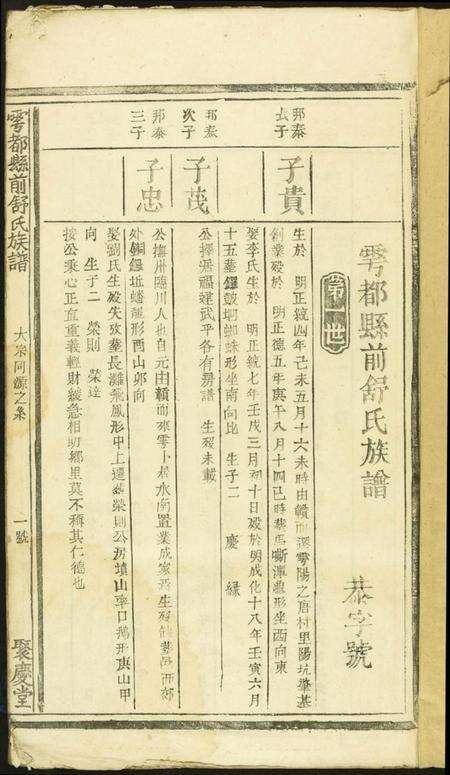 雩都縣前舒氏族譜 恭字號
第一世
邦泰長子
子貴
生於 明正統四年己未五月十六未時由贛而遷雩陽之唐村里陽坑肇基
創業歿於 明正德五年庚午八月十四巳時葬馬嘶潭龍形坐西向東
娶李氏生於 明正統七年壬戌三月初十日歿於明成化十八年壬寅六月
十五葬鑼鼓垇蜘蛛形坐南向北 生子二 慶 緣
邦泰次子
子茂
公擇居福建武平各有房譜 生歿未載
邦泰三子
子忠
公撫州臨川人也自元由贛而來雩卜居水南置業成家焉生歿俱 葬邑西郊
外銅鑼坵蟠龍形酉山卯向
娶劉氏生歿失攷葬長灘飛鳳形中上遷葬榮則公房墳山 口鵝形庚山甲
向 生子二 榮則 榮達
按公秉心正直重義輕財緩急相助鄉里莫不稱其仁德也
雩都縣前舒氏族譜 大宗阿源之系 一號 聚慶堂